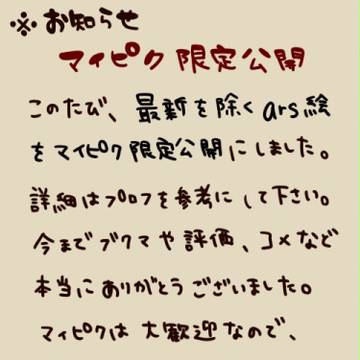 ※お知らせ
マイピク限定公開
このたび、最新を除くars絵
をマイピク限定公開にしました。
詳細はプロフを参考にして下さい。
今までブクマや評価、コメなど
本当にありがとうございました。
マイピクは大歓迎なので、